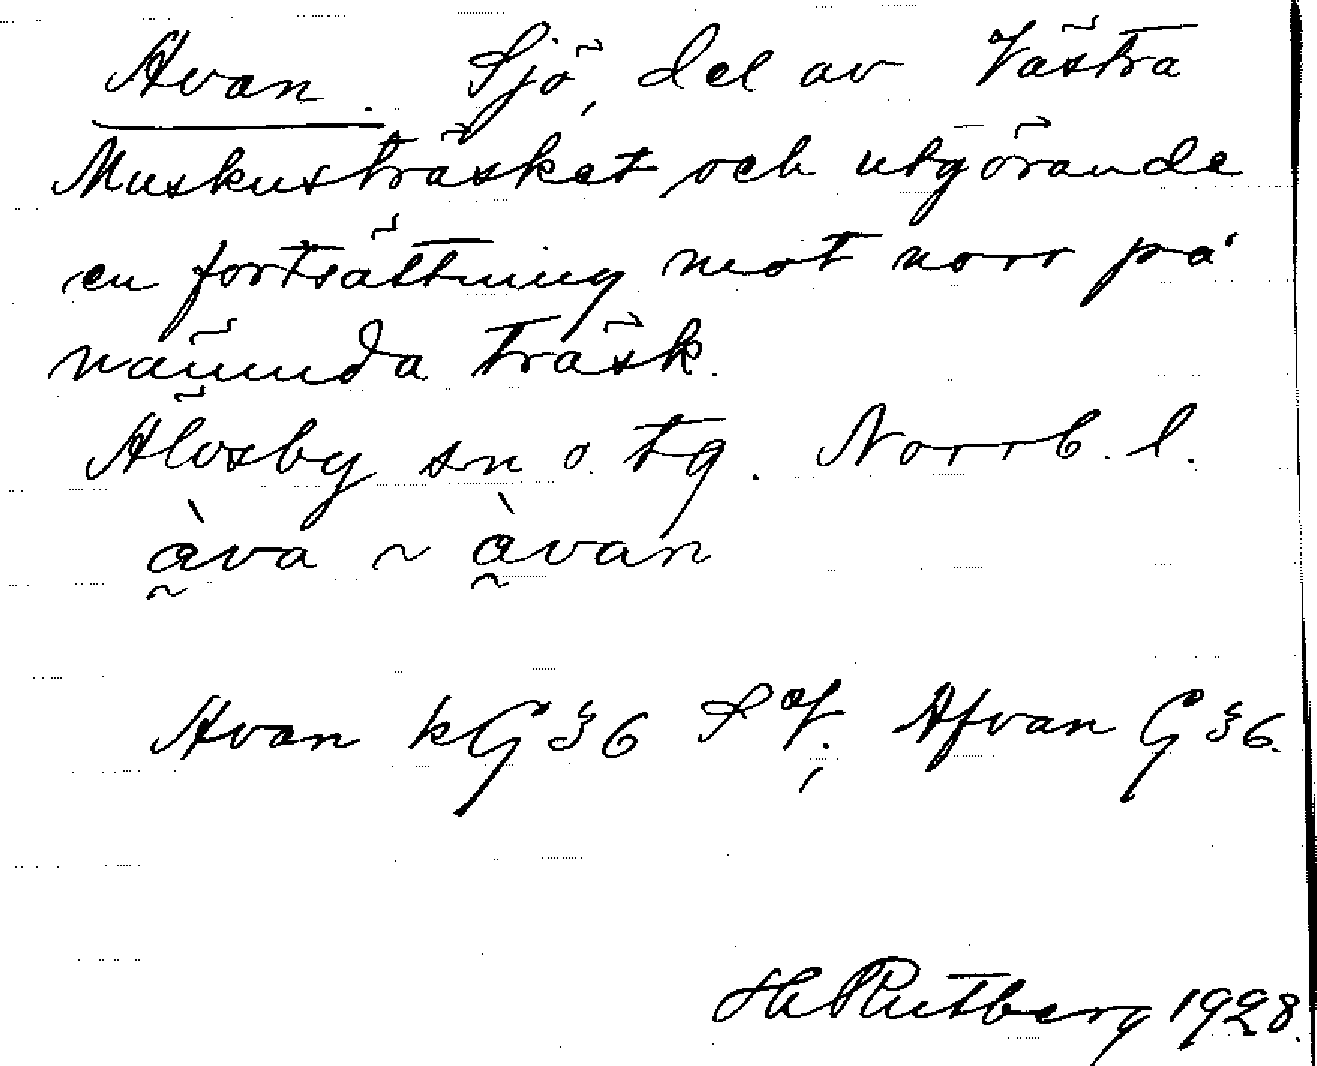 Avan. Sjö, del av Västra
Muskusträsket och utgörande
en fortsättning mot norr på
nämnda träsk.
Älvsby sn o. tg. Norrb. l.
àva ~ àvan
Avan kG §6 S V.; Afvan G §6.
H Rutberg 1928.